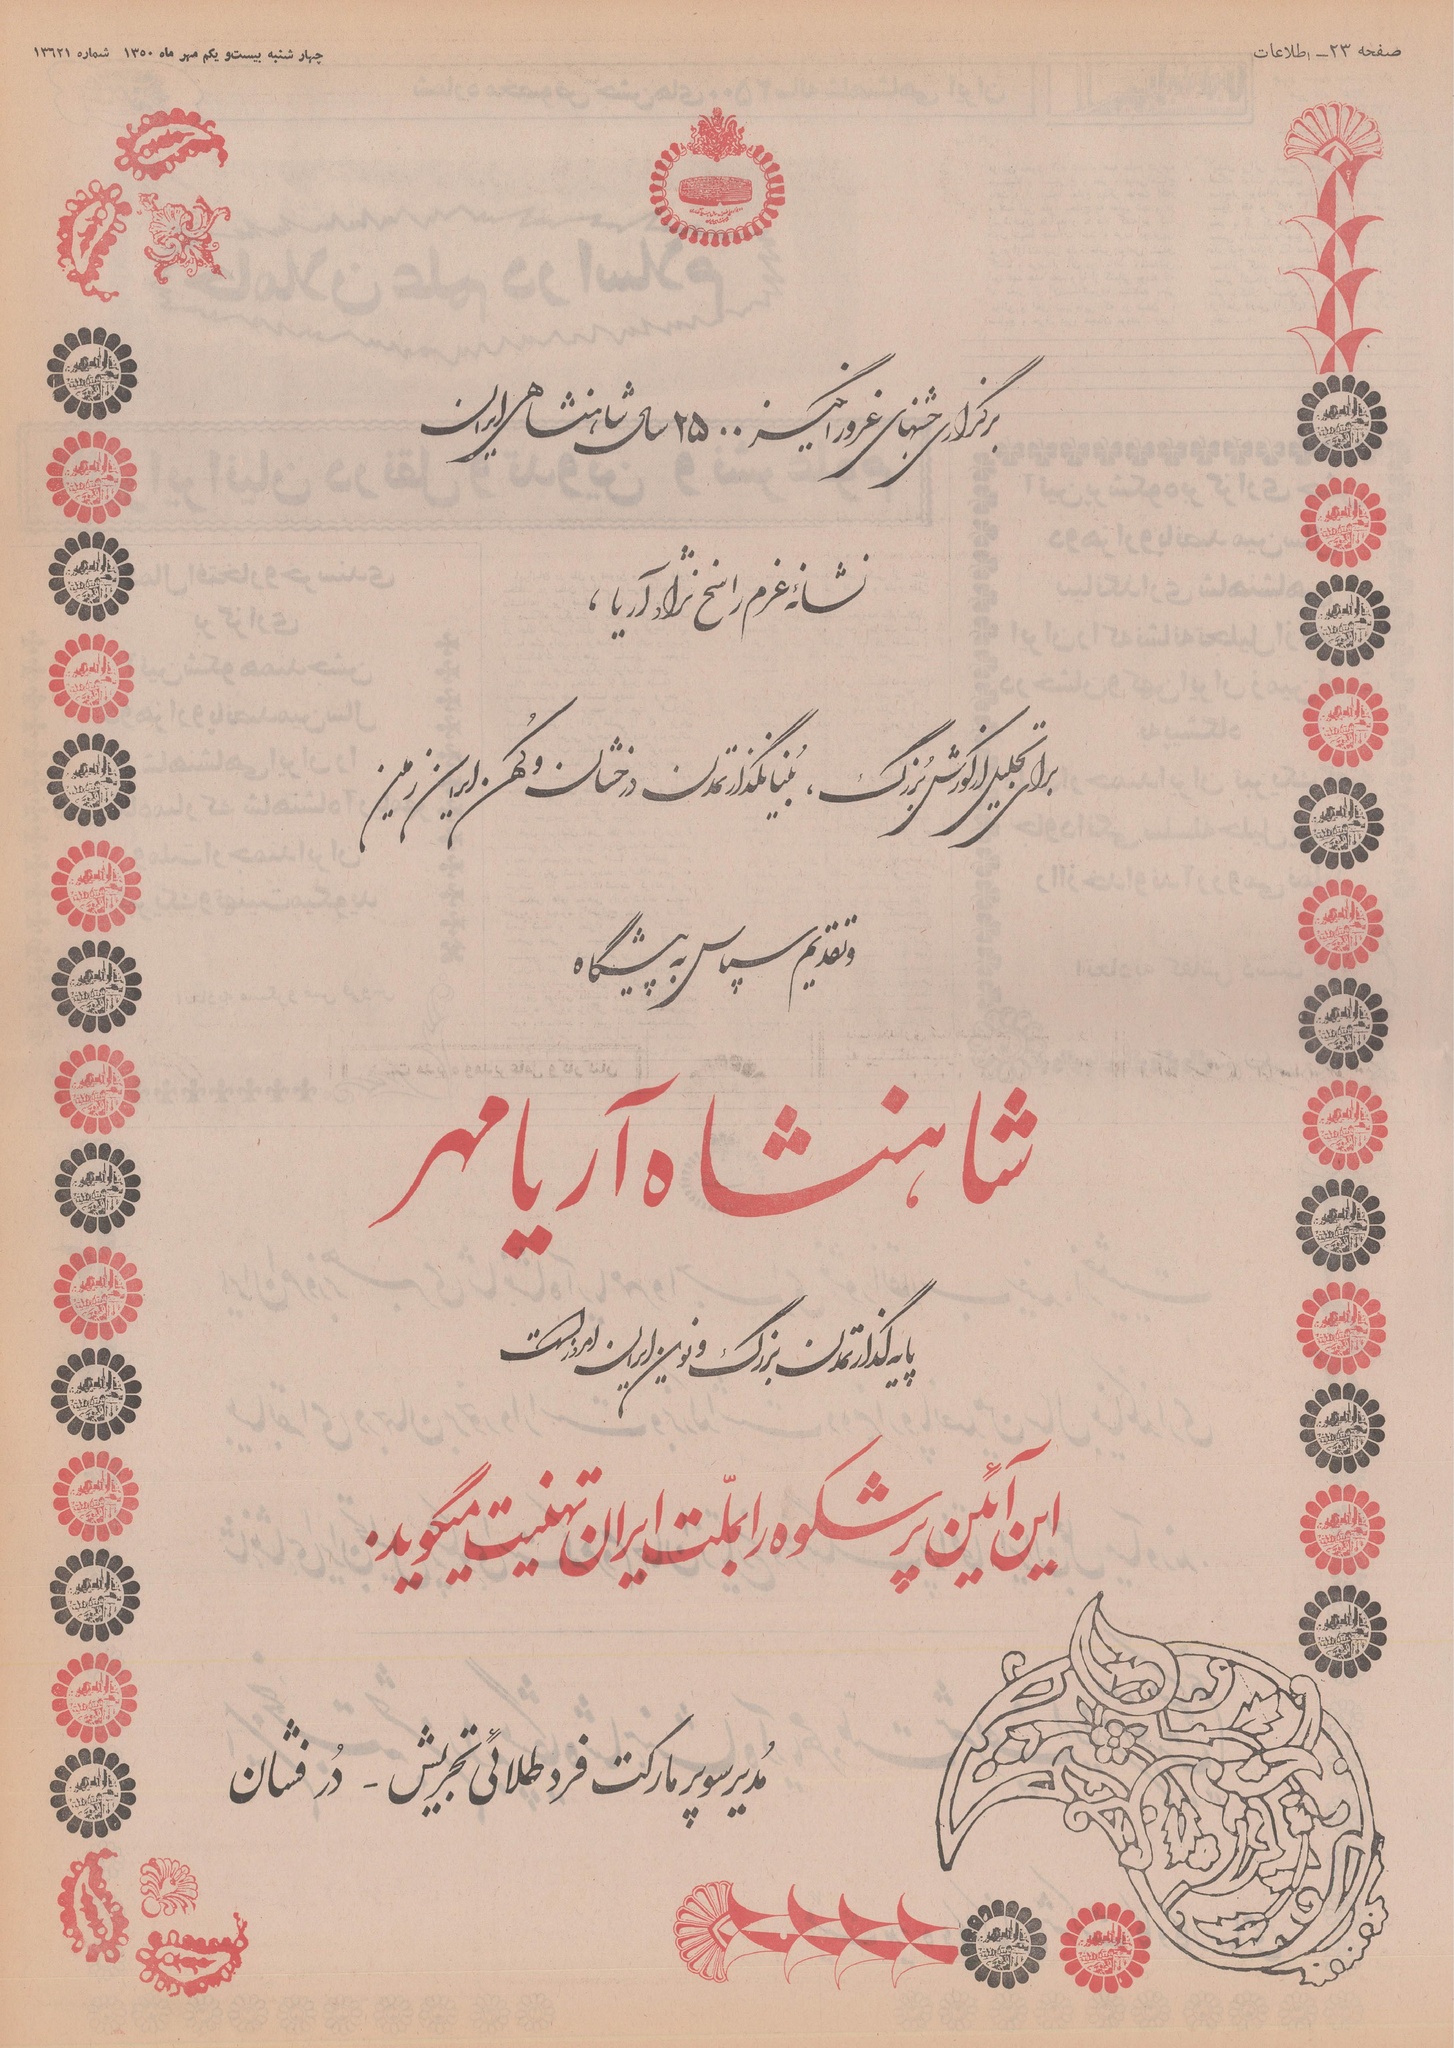 صفحه ۲۳ـ اطلاعات
چهارشنبه بیست‌و یکم مهر ماه ۱۳۵۰ شماره ۱۳۶۲۱
برگزاری جشنهای غرورانگیز ۲۵۰۰ سالهٔ شاهنشاهی ایران
نشانهٔ عزم راسخ نژاد آریا،
برای تجلیل از کورش بزرگ، بُنیانگذار تمدن درخشان و کُهن ایران زمین
و تقدیم سپاس به پیشگاه
شاهنشاه آریامهر
پایه گذار تمدن بزرگ و نوین ایران امروز است
این آئین پرشکوه را بملّت ایران تهنیت میگوید.
مُدیر سوپر مارکت فرد طلائی تجریش - دُرفشان